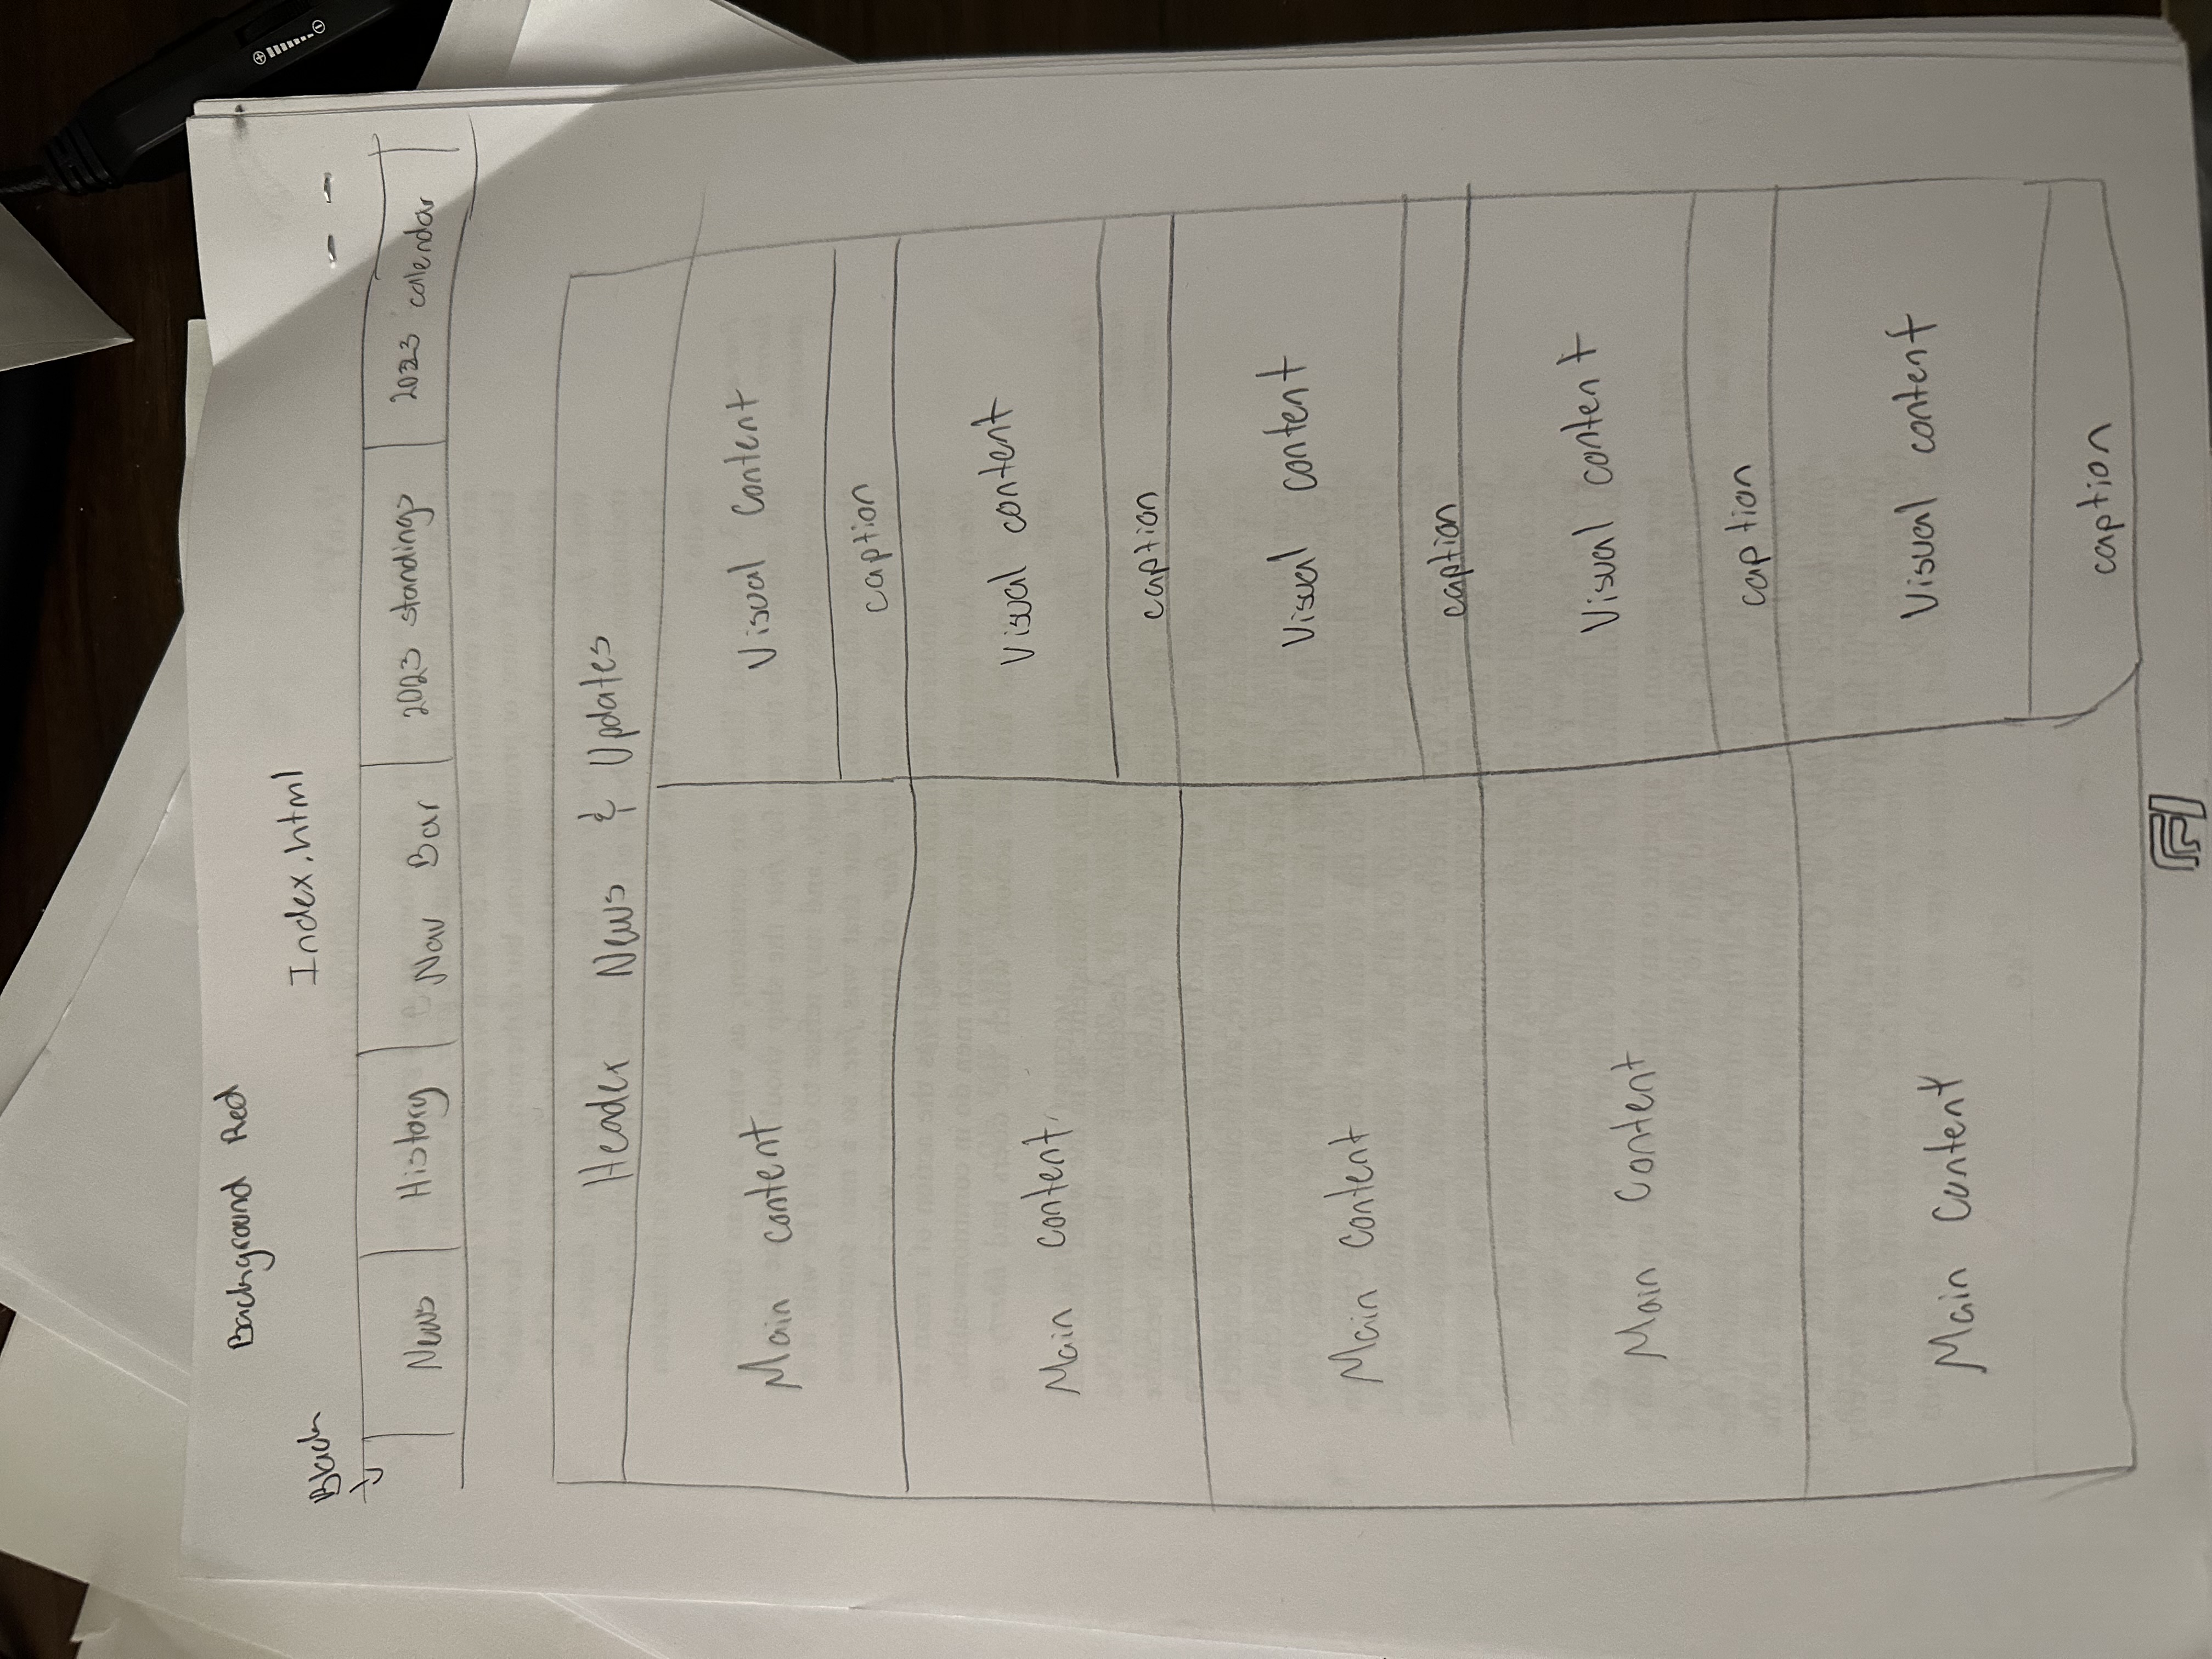 Background Red
Index.html
Black
News History Nav Bar 2023 standings 2023 calendar
Header News & Updates
Main content Visual Content
caption
Main content Visual content
caption
Main Content Visual content
caption
Main Content Visual content
caption
Main Content Visual content
caption
F1